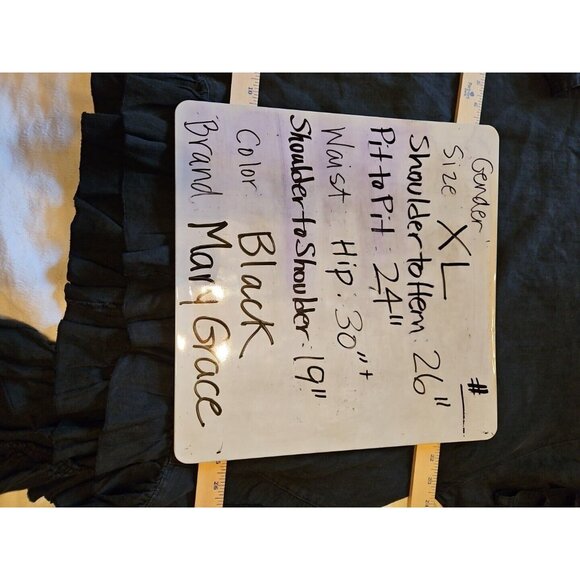 Gender: #
Size XL
Shoulder to Hem: 26"
Pit to Pit: 24"
Waist: Hip: 30"+
Shoulder to Shoulder: 19"
Color: Black
Brand: Mary Grace